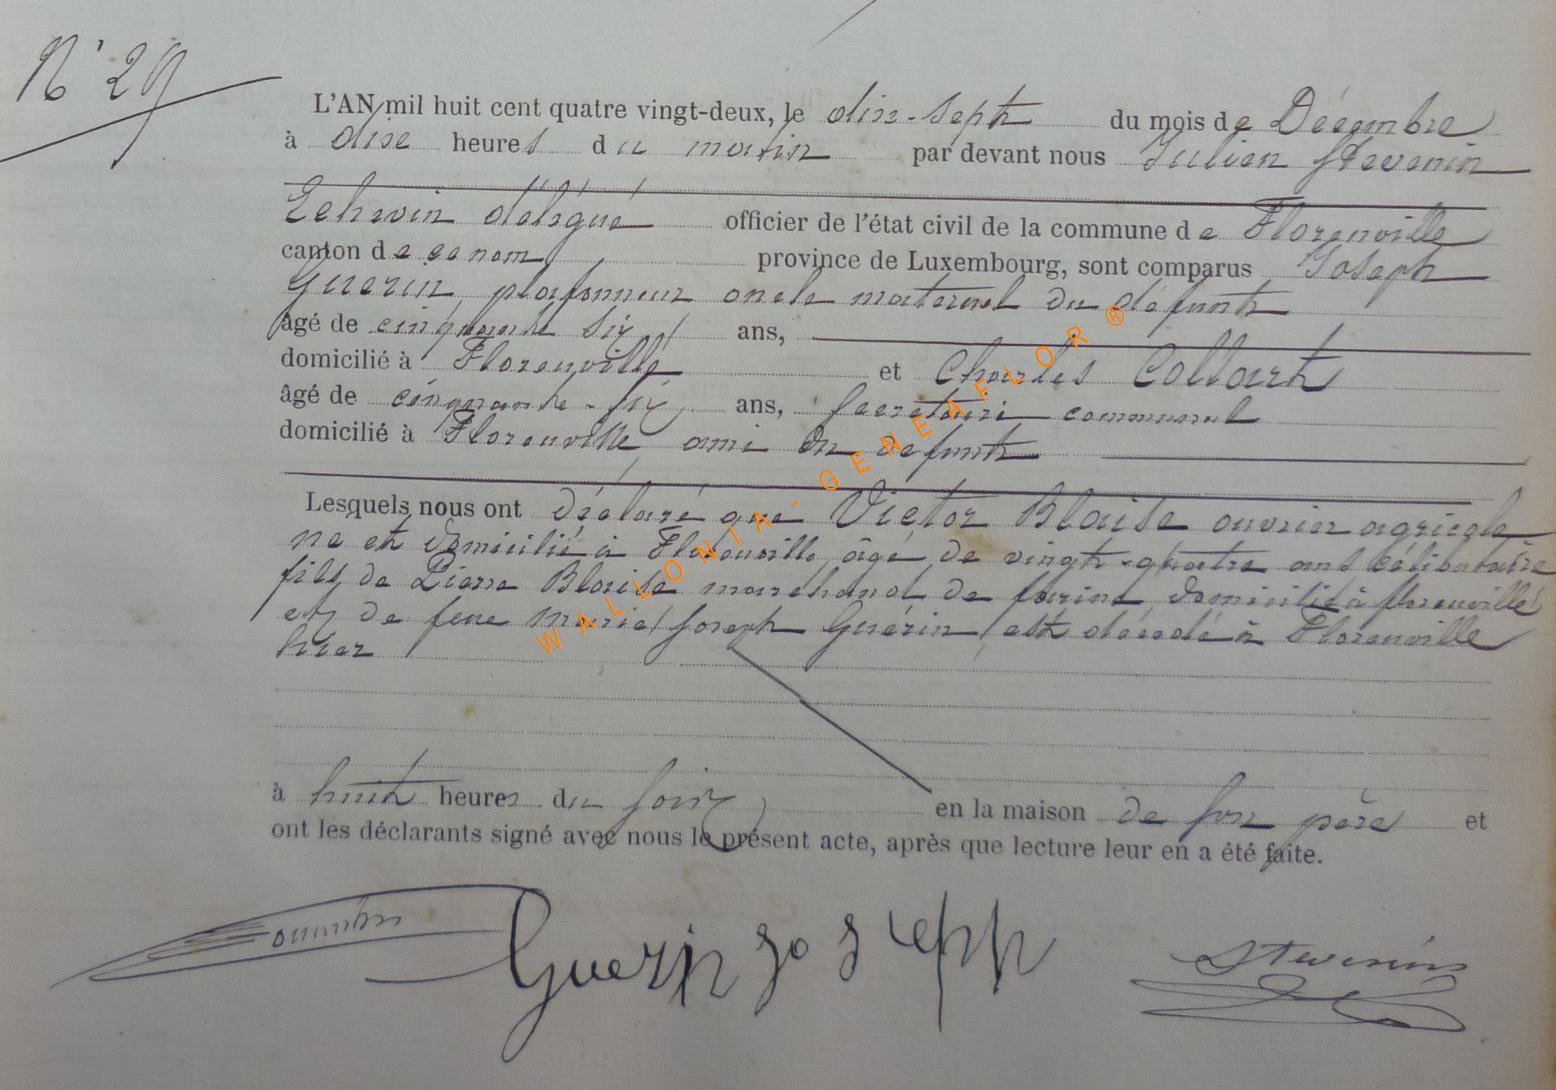 N° 29
L'AN mil huit cent quatre vingt-deux, le dix-sept du mois de Décembre
à dise heures du matin par devant nous Julien Stevenin
Echevin délégué officier de l'état civil de la commune de Florenville
canton de ce nom province de Luxembourg, sont comparus Joseph
Guerin, plafonneur oncle maternel du défunt
âgé de cinquante six ans,
domicilié à Florenville et Charles Collart
âgé de cinquante-six ans, secretaire communal
domicilié à Florenville, ami du defunt
Lesquels nous ont déclaré que Victor Blaise ouvrier agricole
né et domicilié à Florenville, âgé de vingt-quatre ans célibataire
fils de Pierre Blaise marchand de farine domicilié à florenville
et de feue Marie Joseph Guérin, est décédé à Florenville
hier
à huit heures du soir, en la maison de son père et
ont les déclarants signé avec nous le présent acte, après que lecture leur en a été faite.
Guerin Joseph Stevenin
WALLONIA - GENEAFLOR ®